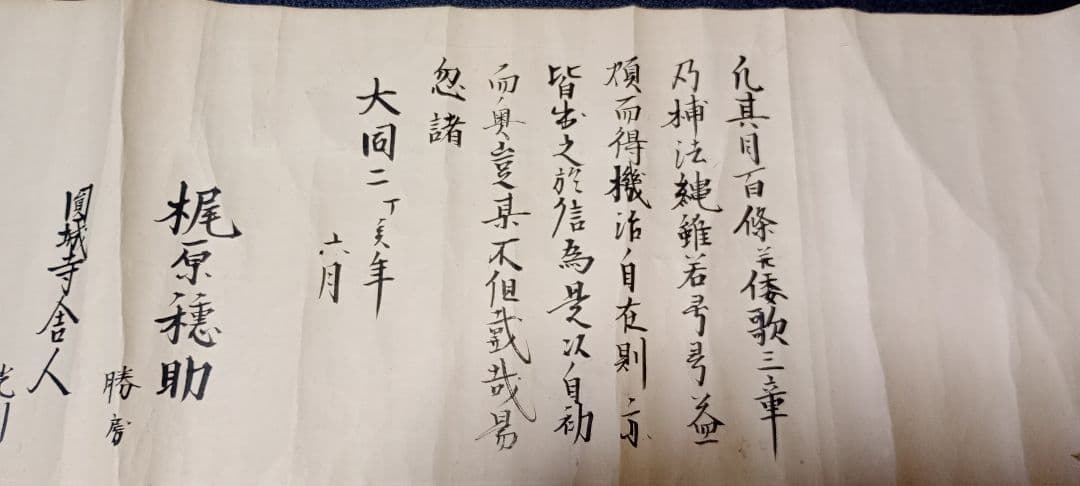 凡其目百條并倭歌三章
乃捕法繩雖若号号益
煩而得機治自在則亦
皆出之於信為是以自初
而奥豈某不但戴哉易
忽諸
大同二丁亥年
六月
梶原穩助
勝房
圓城寺舎人